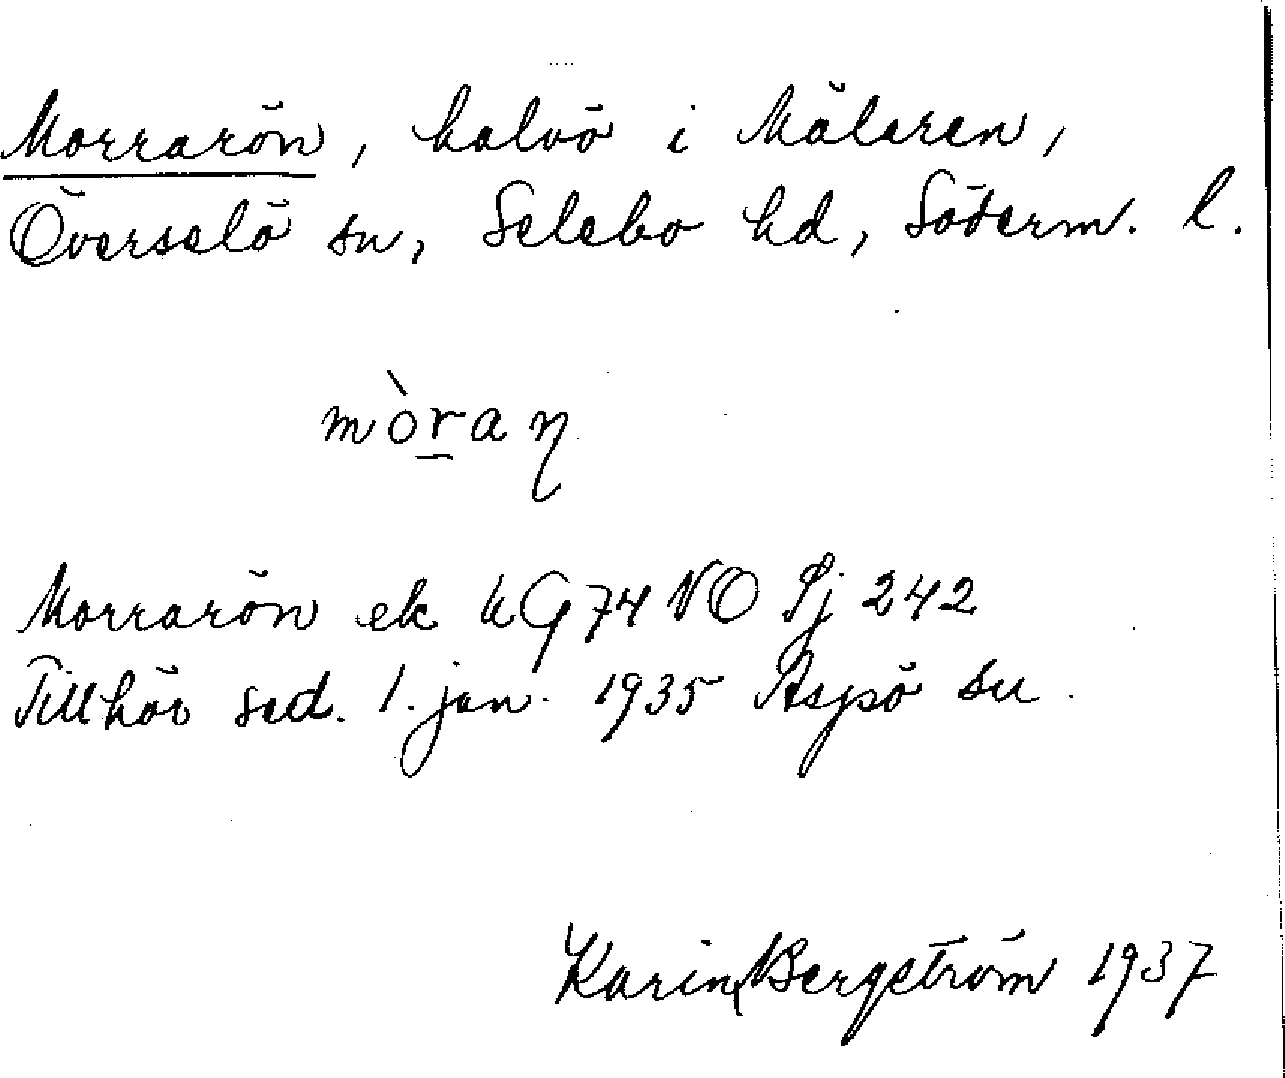 Morrarön, halvö i Mälaren,
Överselö sn, Selebo hd, Söderm. l.
mòran
Morrarön ek KG 74 NO Sj 242
Tillhör sed. 1. jan. 1935 Aspö sn.
Karin Bergström 1937